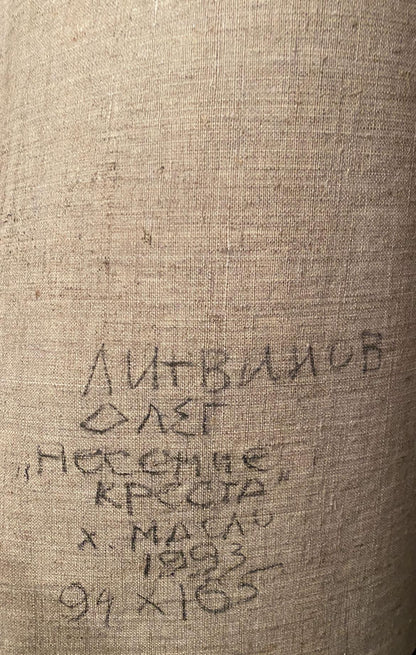 ЛИТВИНОВ
ОЛЕГ
„Несение
креста"
х. масло
1993
94 х 165